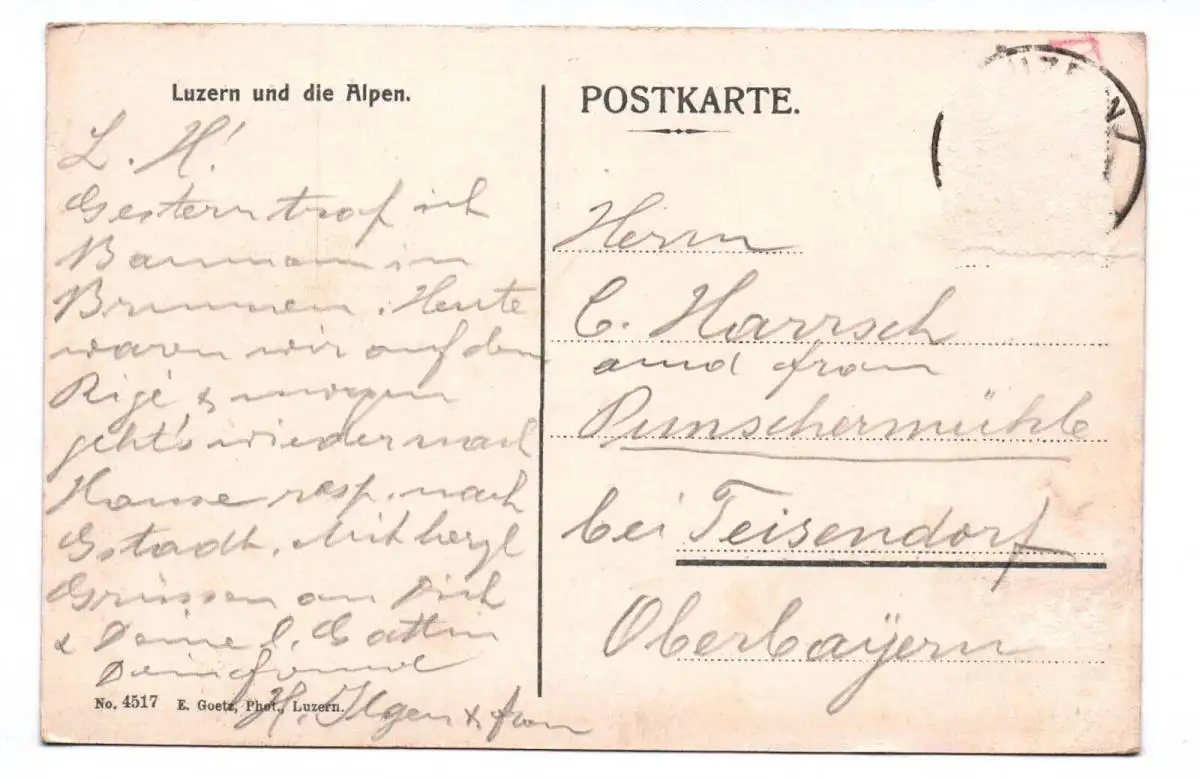 Luzern und die Alpen.
L. H!
Gestern traf ich
in
Brunnen. Heute
waren wir auf dem
Rigi, & morgen
geht's wieder nach
Hause resp. nach
Gstadt. Mit herzl
Grüssen an Dich
& Deine l. Gattin
Dein
H. Ilgen & frau
No. 4517 E. Goetz, Phot., Luzern.
POSTKARTE.
Herrn
C. Harrsch
und frau
Punschermühle
bei Teisendorf
Oberbayern